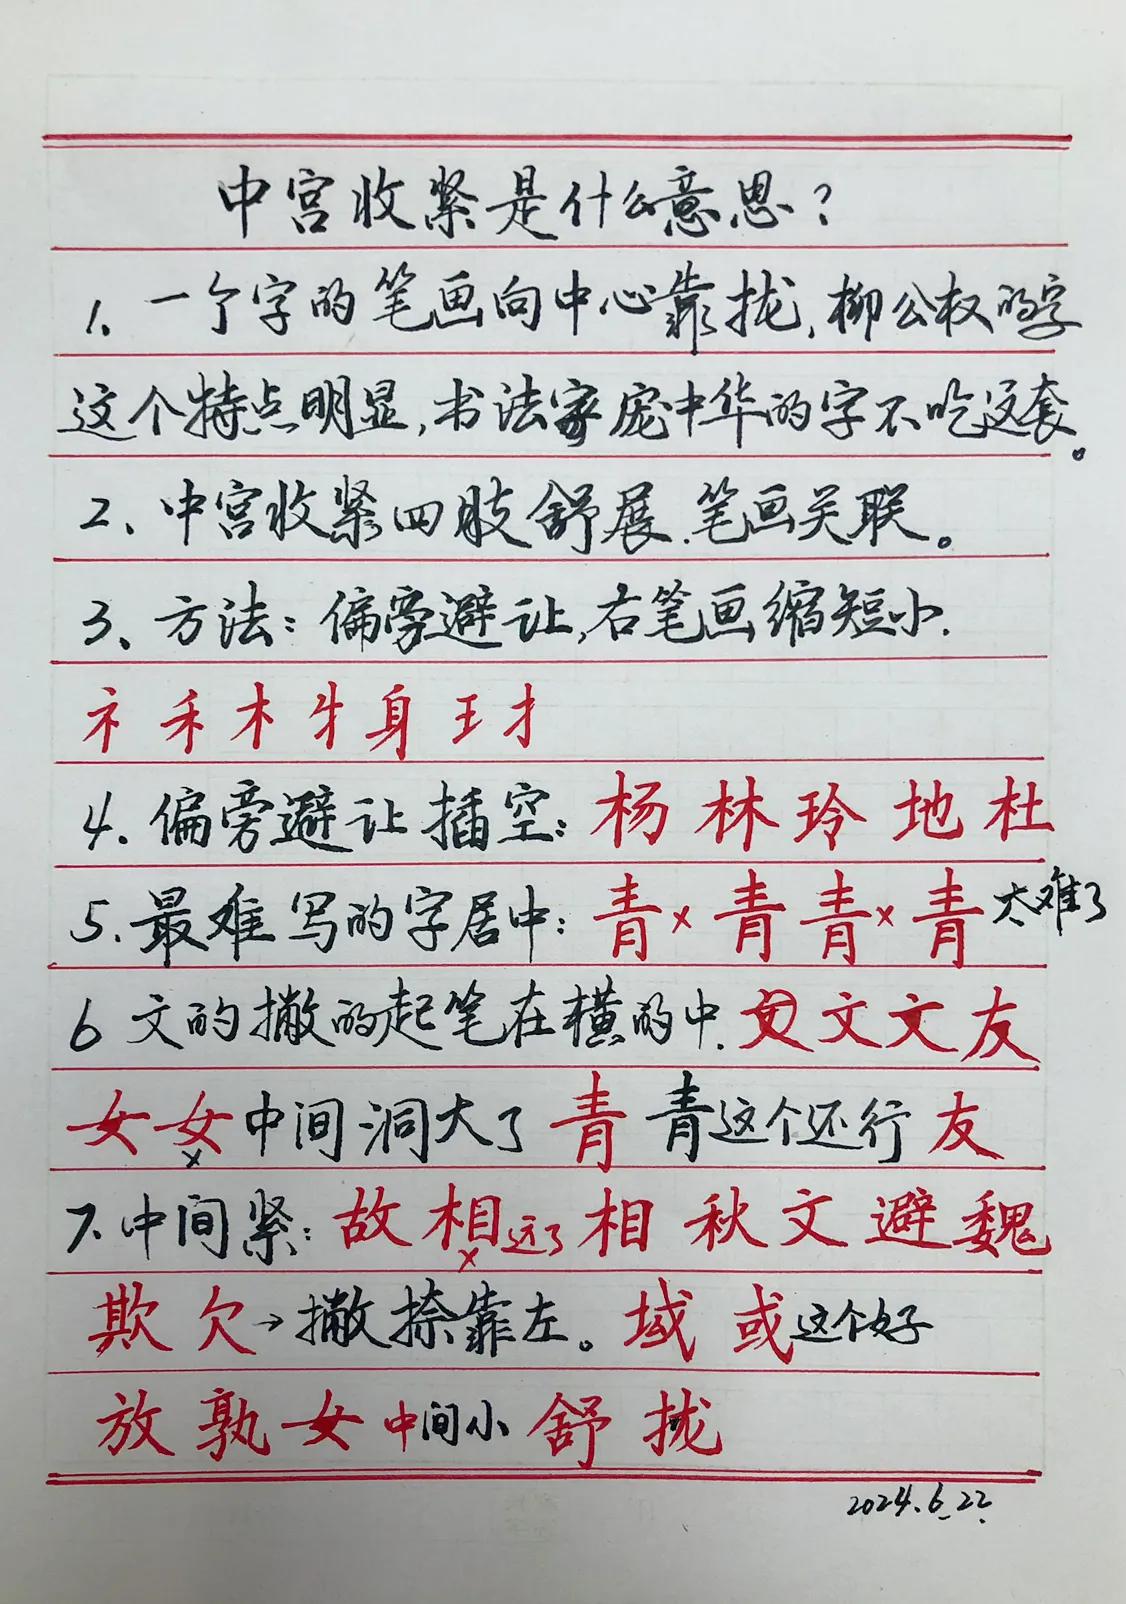 中宫收紧是什么意思?
1、一个字的笔画向中心靠拢,柳公权的字
这个特点明显,书法家庞中华的字不吃这套。
2、中宫收紧四肢舒展.笔画关联。
3、方法:偏旁避让,右笔画缩短小.
礻禾木牜身王扌
4.偏旁避让插空:杨林玲地杜
5.最难写的字居中:青×青青×青太难了
6文的撇的起笔在横的中.文文文友
女女×中间洞大了青青这个还行友
7.中间紧:故相×远了相秋文避魏
欺欠→撇捺靠左。域或这个好
放孰女中间小舒拢
2024.6.22